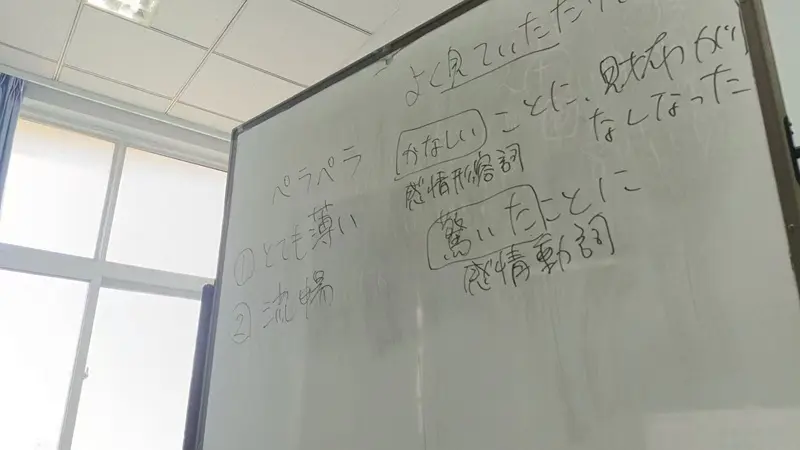 よく見ていただけ
ペラペラ
① とても薄い
② 流暢
かなしいことに、財布が
なしなった
感情形容詞
驚いたことに
感情動詞